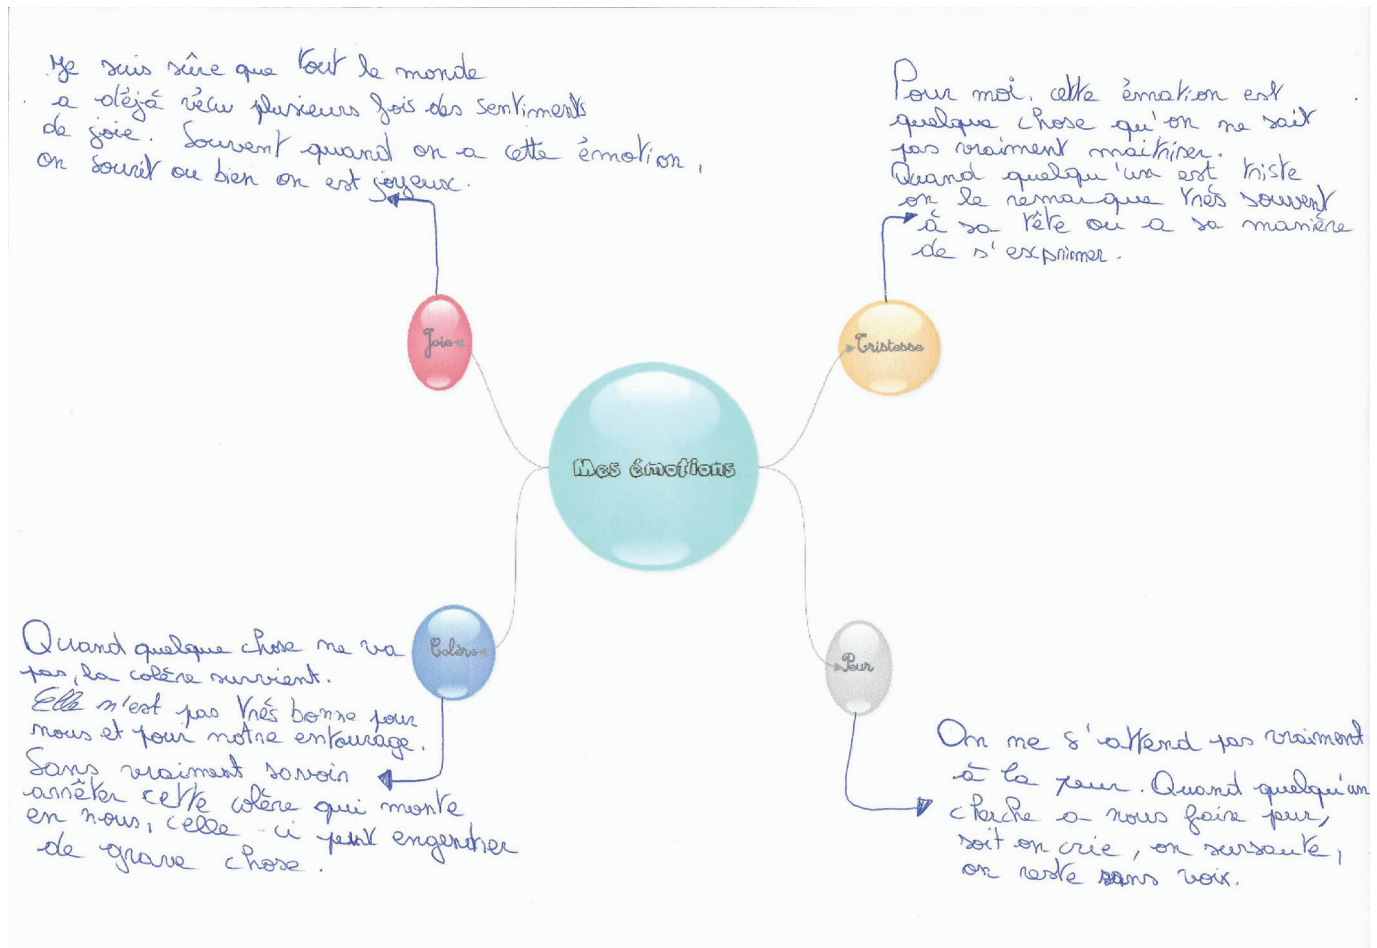 Je suis sûre que tout le monde
a déjà vécu plusieurs fois des sentiments
de joie. Souvent quand on a cette émotion,
on sourit ou bien on est joyeux.
Pour moi, cette émotion est
quelque chose qu'on ne sait
pas vraiment maitriser.
Quand quelqu'un est triste
on le remarque très souvent
à sa tête ou a sa manière
de s'exprimer.
Joie
Tristesse
Mes émotions
Colère
Peur
Quand quelque chose ne va
pas, la colère survient.
Elle n'est pas très bonne pour
nous et pour notre entourage.
Sans vraiment savoir
arrêter cette colère qui monte
en nous, celle-ci peut engendrer
de grave chose.
On ne s'attend pas vraiment
à la peur. Quand quelqu'un
cherche a nous faire peur,
soit on crie, on sursaute,
on reste sans voix.